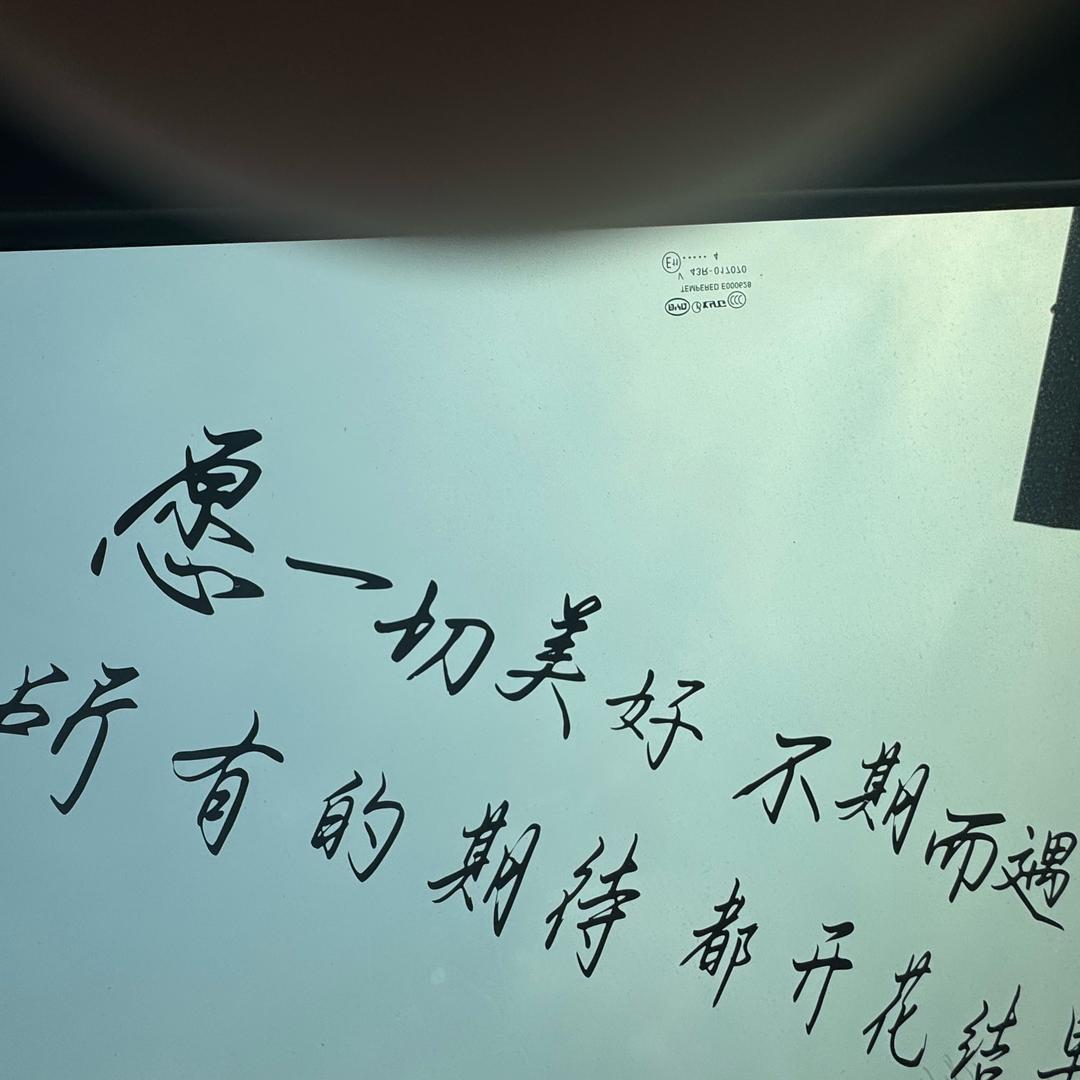 E11 ····· 4
V 43R-017070
TEMPERED E000628
BYD CCC
愿一切美好 不期而遇
所有的期待 都开花结果